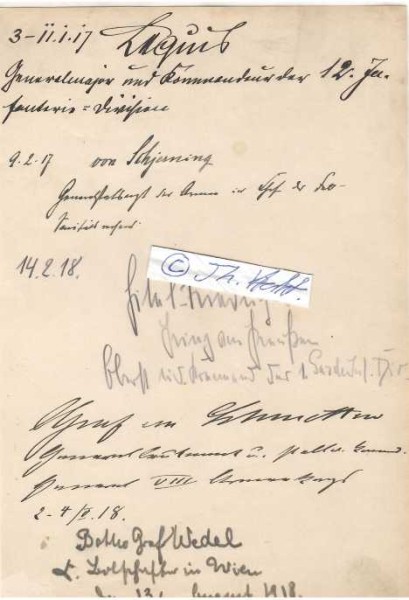 3-11.1.17 Lequis
Generalmajor und Kommandeur der 12. In-
fanterie-Division
9.2.17 von Schjerning
Generalstabsarzt der Armee u. Chef des
Sanitäts
14.2.18.
© Th.
Eitel Friedrich
Prinz von Preußen
Oberst und Kommand der 1. Garde Inf. Div.
Graf von Schmettow
Generalleutnant u. stellv. Komm.
General VIII Armeekorps
2-4/V.18.
Botho Graf Wedel
K. Botschafter in Wien
den 13. August 1918.